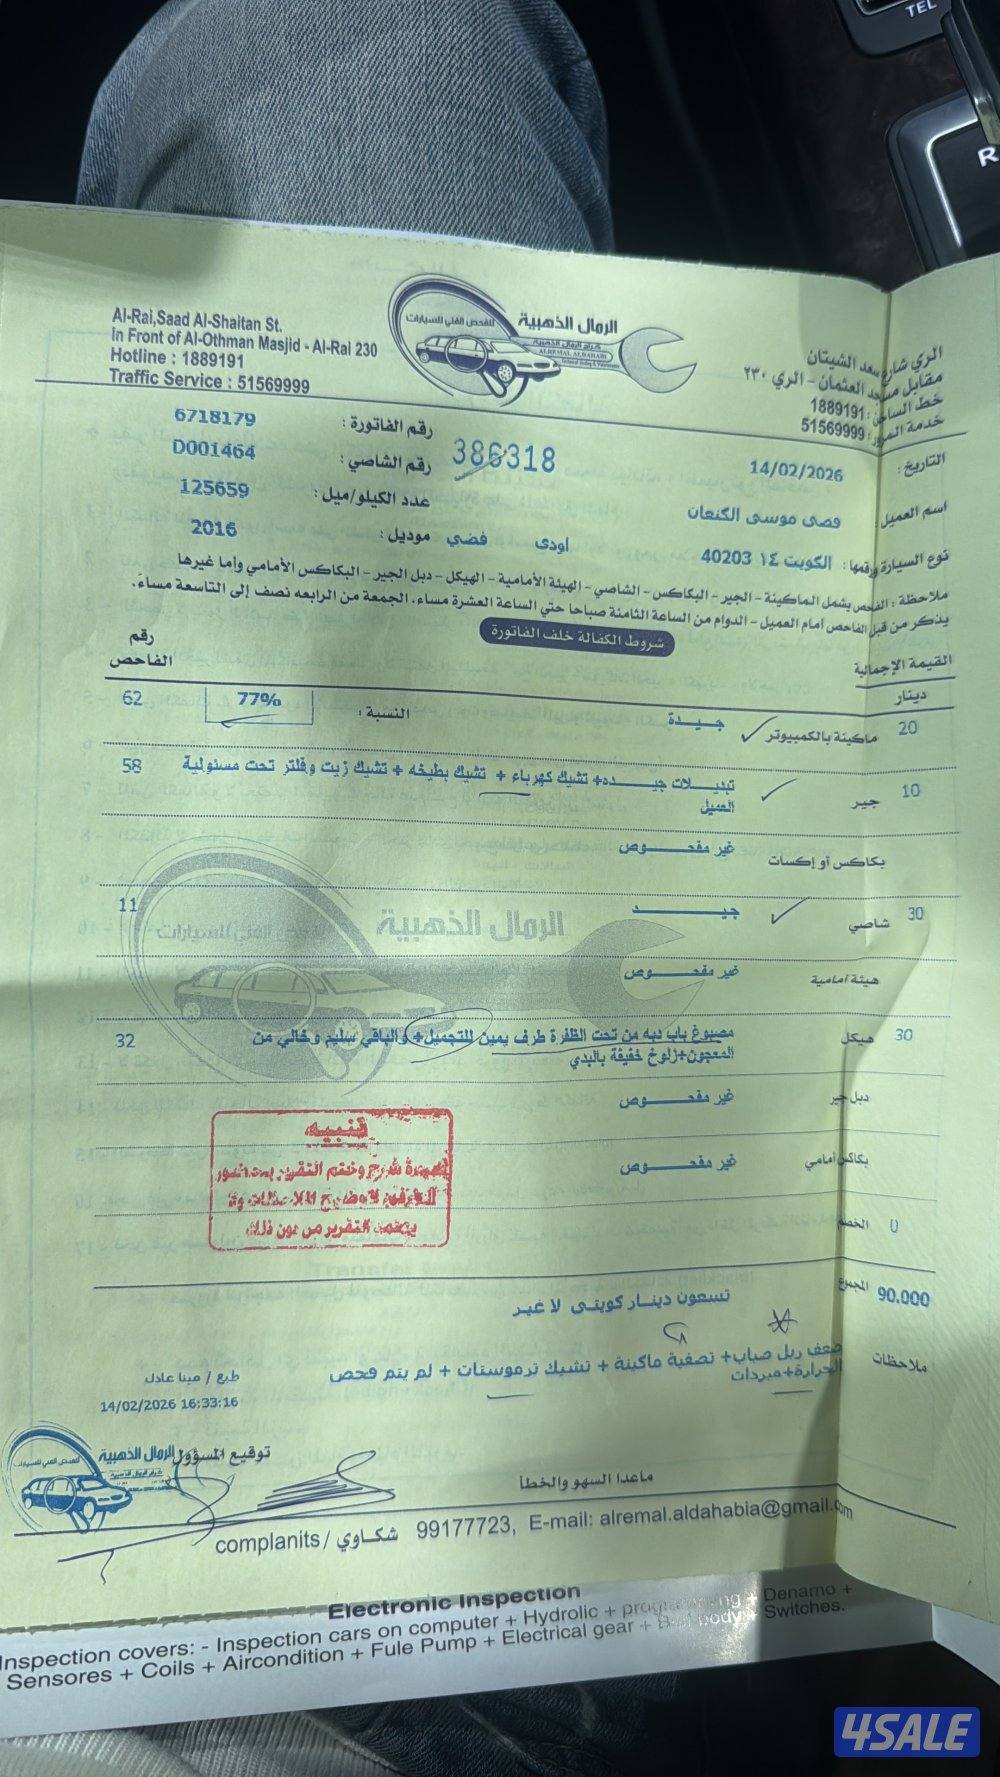 TEL
R
Al-Rai,Saad Al-Shaitan St.
In Front of Al-Othman Masjid - Al-Rai 230
Hotline : 1889191
Traffic Service : 51569999
الرمال الذهبية
للفحص الفني للسيارات
كراج الرمال الذهبية
ALREMAL ALDAHABI
الري شارع سعد الشيتان
مقابل مسجد العثمان - الري ٢٣٠
خط الساخن : 1889191
خدمة المرور : 51569999
رقم الفاتورة : 6718179
386318
التاريخ : 14/02/2026
رقم الشاصي : D001464
اسم العميل : قصى موسى الكنعان
عدد الكيلو/ميل : 125659
نوع السيارة ورقمها : الكويت ١٤ 40203 اودى فضي موديل : 2016
ملاحظة : الفحص يشمل الماكينة - الجير - البكاكس - الشاصي - الهيئة الأمامية - الهيكل - دبل الجير - البكاكس الأمامي وإما غيرها
يذكر من قبل الفاحص أمام العميل - الدوام من الساعة الثامنة صباحا حتي الساعة العشرة مساء. الجمعة من الرابعه نصف إلى التاسعة مساءً.
شروط الكفالة خلف الفاتورة
القيمة الإجمالية
دينار
رقم الفاحص
20 ماكينة بالكمبيوتر جـيـدة النسبة : 77% 62
10 جير تبديـــلات جيـده+ تشيك كهرباء + تشيك بطيخه + تشيك زيت وفلتر تحت مسئولية 58
العميل
بكاكس أو إكسات غير مفحــــوص
30 شاصي جيـــــد 11
هيئة أمامية غير مفحــــوص
30 هيكل مصبوغ باب دبه من تحت الظفرة طرف يمين للتجميل+ والباقي سليم وخالي من 32
المعجون+زلوخ خفيفة بالبدي
دبل جير غير مفحــــوص
بكاكس أمامي غير مفحــــوص
الخصم 0
المجموع 90.000
تسعون دينار كويتى لا غير
تنبيه
شرح وختم التقرير
التقرير من دون ذلك
ملاحظات
ضعف ربل صباب+ تصفية ماكينة + تشيك ترموستات + لم يتم فحص
الحرارة+مبردات
طبع / مينا عادل
14/02/2026 16:33:16
توقيع المسؤول
الرمال الذهبية
ماعدا السهو والخطأ
complanits / شكاوي 99177723, E-mail: alremal.aldahabia@gmail.com
Electronic Inspection
Inspection covers: - Inspection cars on computer + Hydrolic + programming + Denamo +
Sensores + Coils + Aircondition + Fule Pump + Electrical gear + Ball body + Switches.
4SALE